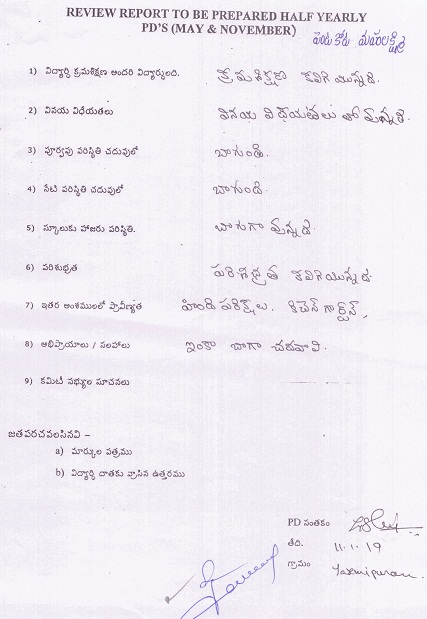 REVIEW REPORT TO BE PREPARED HALF YEARLY
PD'S (MAY & NOVEMBER)
1) విద్యార్థి క్రమశిక్షణ అందరి విద్యార్థులది. క్రమశిక్షణ కలిగి యున్నది.
2) వినయ విధేయతలు వినయ విధేయతలు తో వున్నది.
3) పూర్వపు పరిస్థితి చదువులో బాగుంది.
4) నేటి పరిస్థితి చదువులో బాగుంది.
5) స్కూలుకు హాజరు పరిస్థితి. బాగుగా వున్నది.
6) పరిశుభ్రత పరిశుభ్రత కలిగియున్నది
7) ఇతర అంశములలో ప్రావీణ్యత హింది పరీక్షలు. కిచెన్ గార్డెన్,
8) అభిప్రాయాలు / సలహాలు ఇంకా బాగా చదవాలి.
9) కమిటీ సభ్యుల సూచనలు
జతపరచవలసినవి –
a) మార్కుల పత్రము
b) విద్యార్థి దాతకు వ్రాసిన ఉత్తరము
PD సంతకం
తేది. 11.1.19
గ్రామం Laxmipuram.